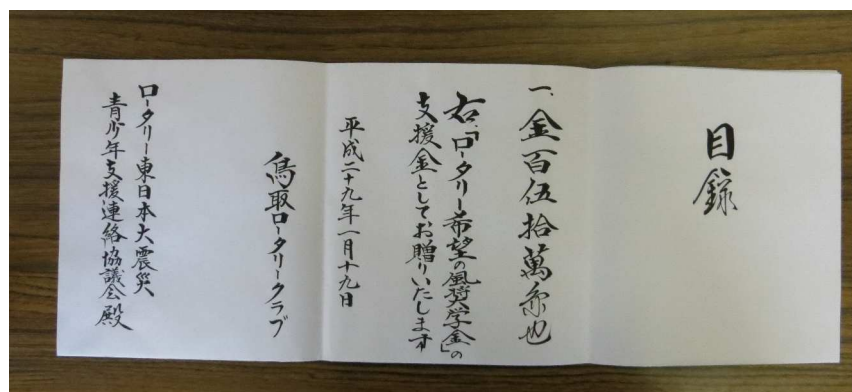 目録
一、金百伍拾萬系也
右、「ロータリー希望の風奨学金」の
支援金としてお贈りいたします
平成二十九年一月十九日
鳥取ロータリークラブ
ロータリー東日本大震災
青少年支援連絡協議会殿